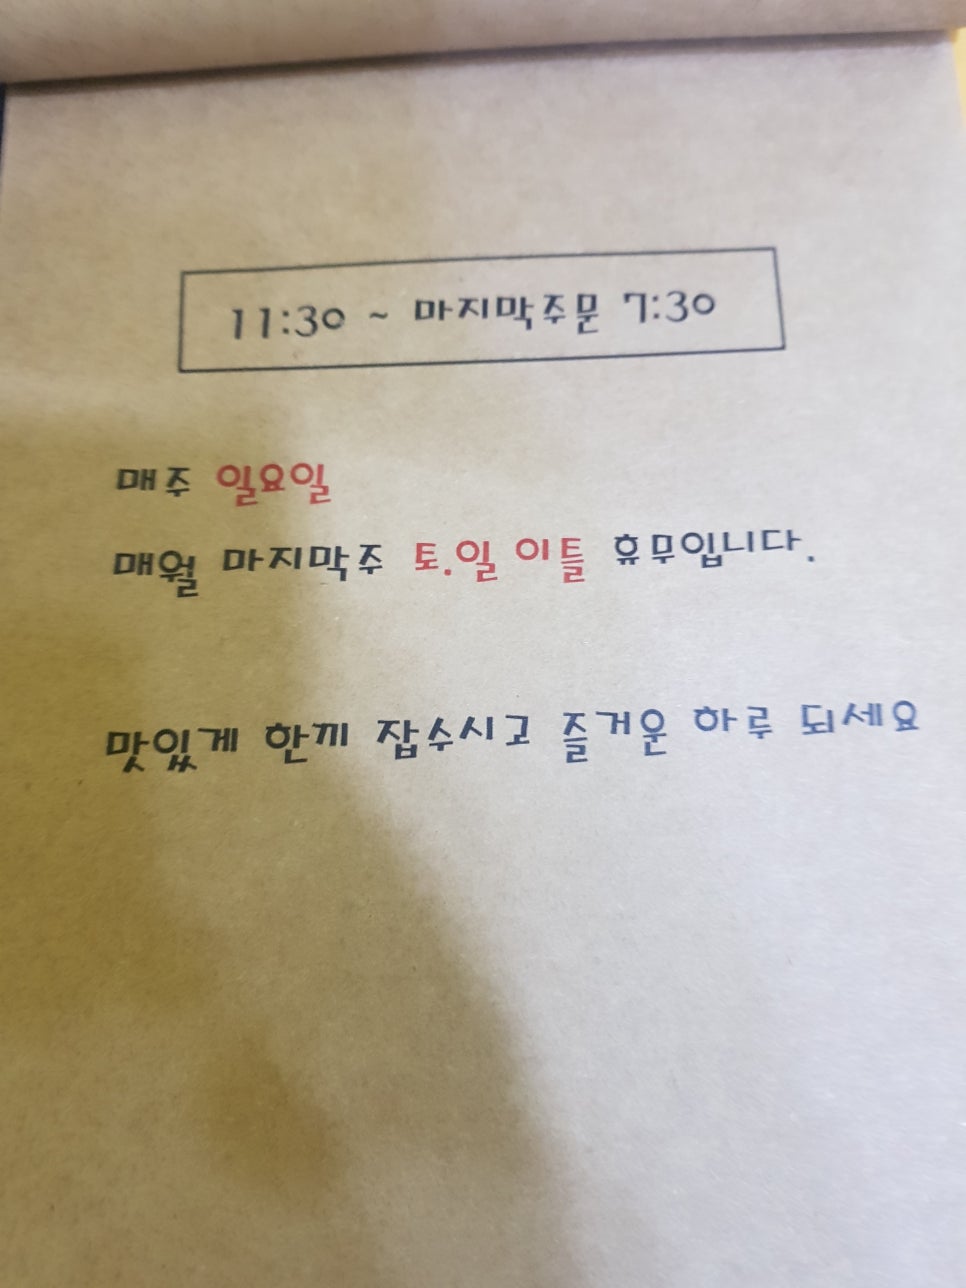 11:30 ~ 마지막주문 7:30
매주 일요일
매월 마지막주 토.일 이틀 휴무입니다.
맛있게 한끼 잡수시고 즐거운 하루 되세요